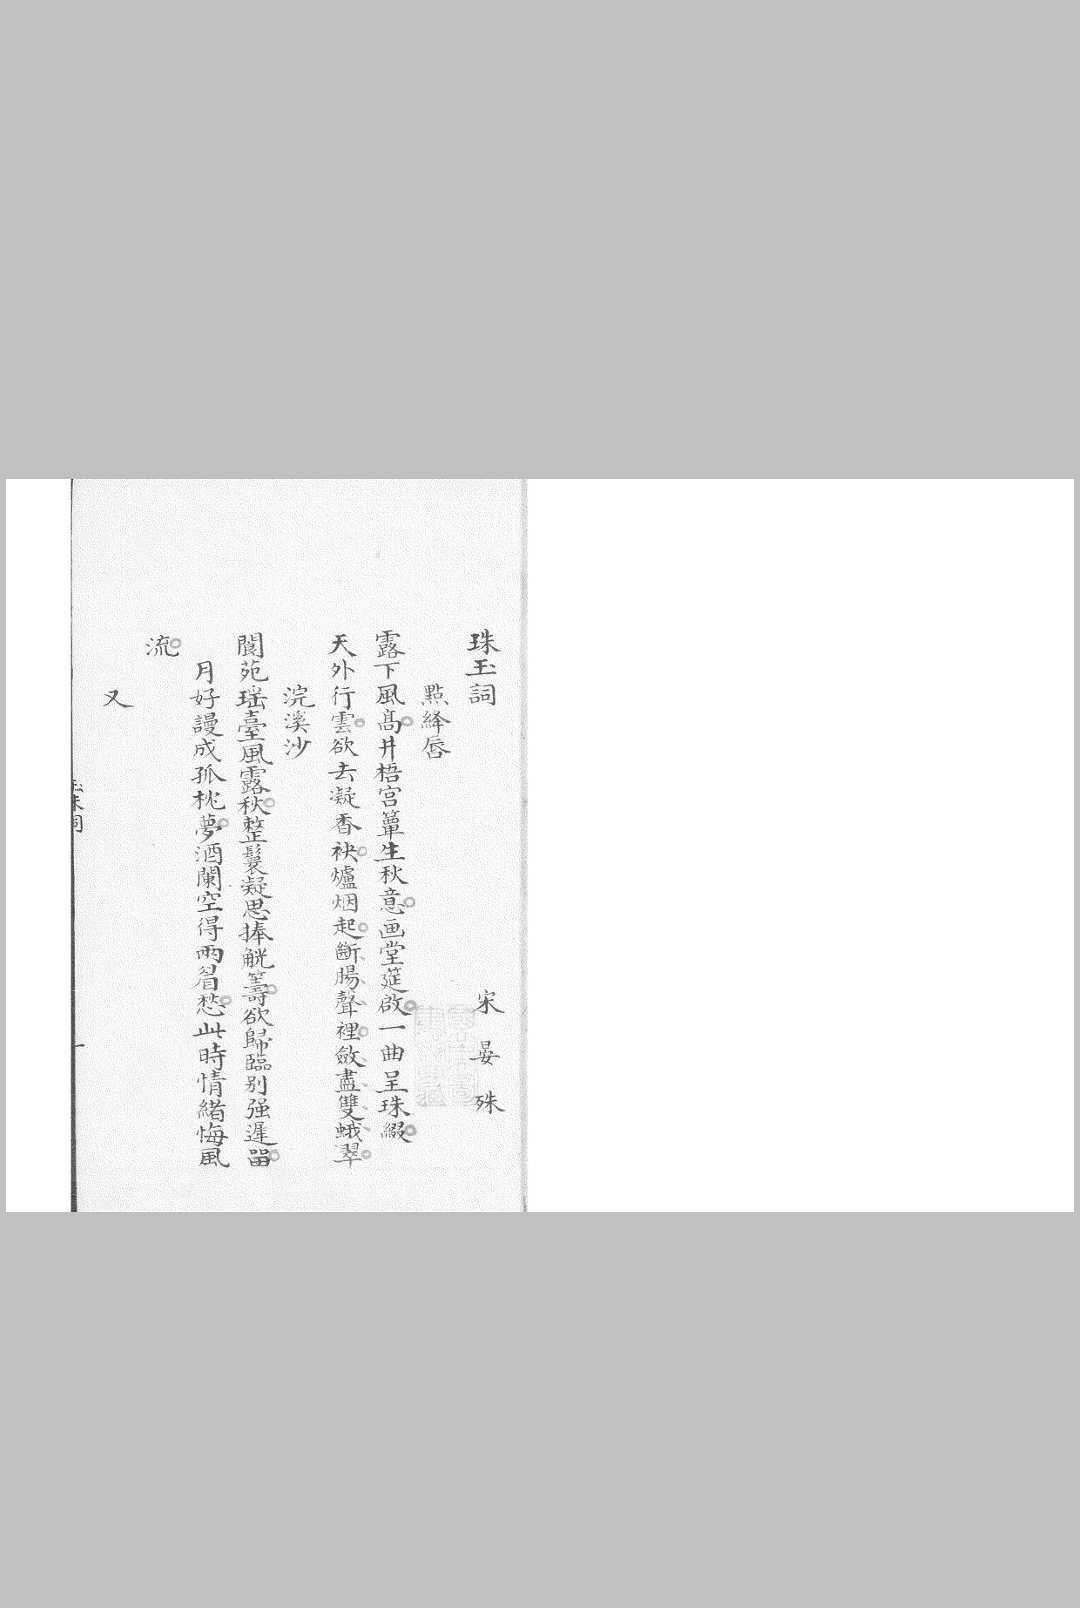 珠玉詞
宋 晏 殊
點絳唇
露下風髙井梧宫簟生秋意画堂筵啟一曲呈珠綴
天外行雲欲去凝香袂爐烟起斷腸聲裡斂盡雙蛾翠
浣溪沙
閬苑瑶臺風露秋整鬟凝思捧觥籌欲歸臨别强遲畱
月好謾成孤枕夢酒闌空得兩眉愁此時情緒悔風
流
又
珠詞
一